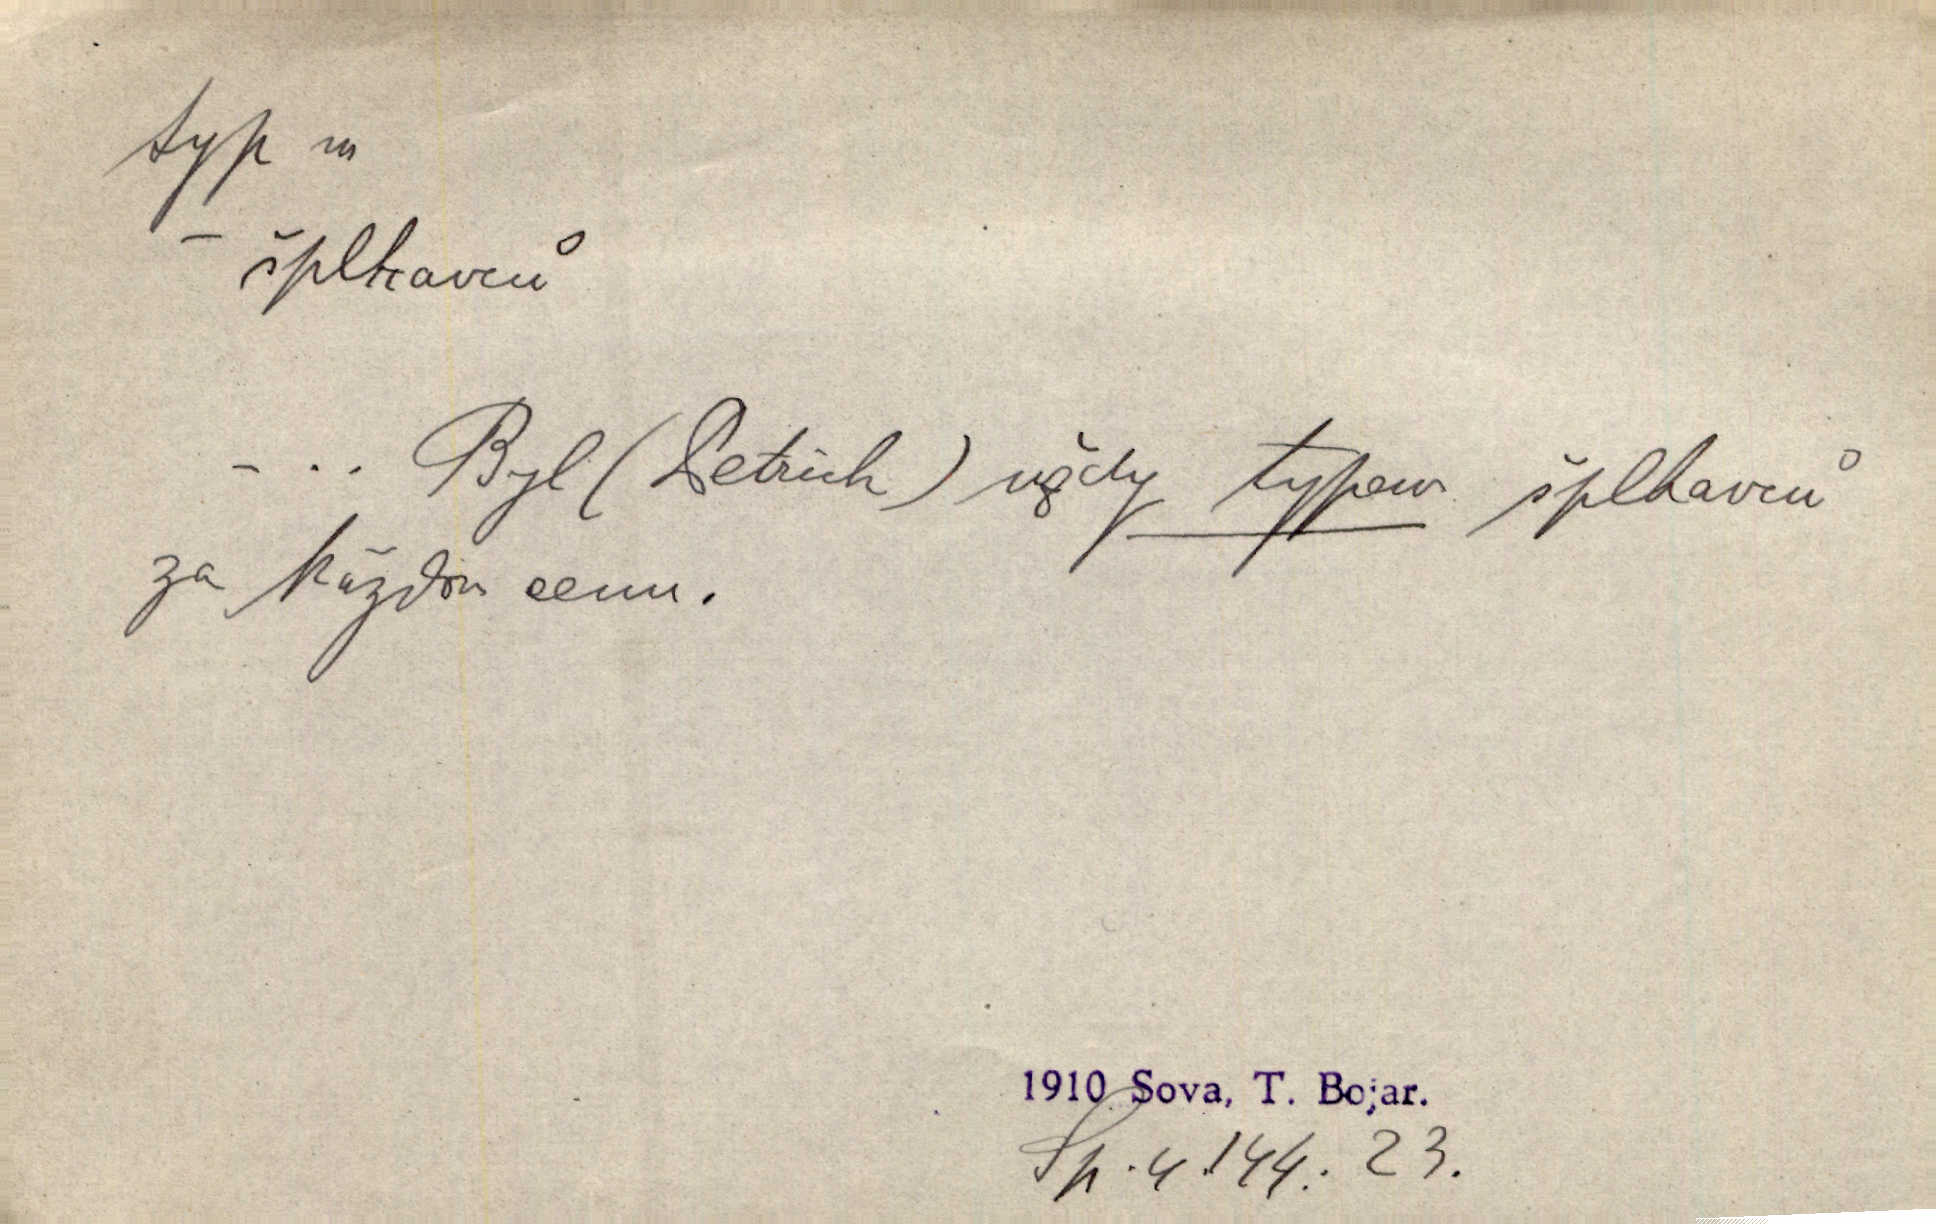 typ m
– šplhavců
– . . Byl (Detrich) vždy typem šplhavců
za každou cenu.
1910 Sova, T. Bojar.
Sp. 4. 144. 23.